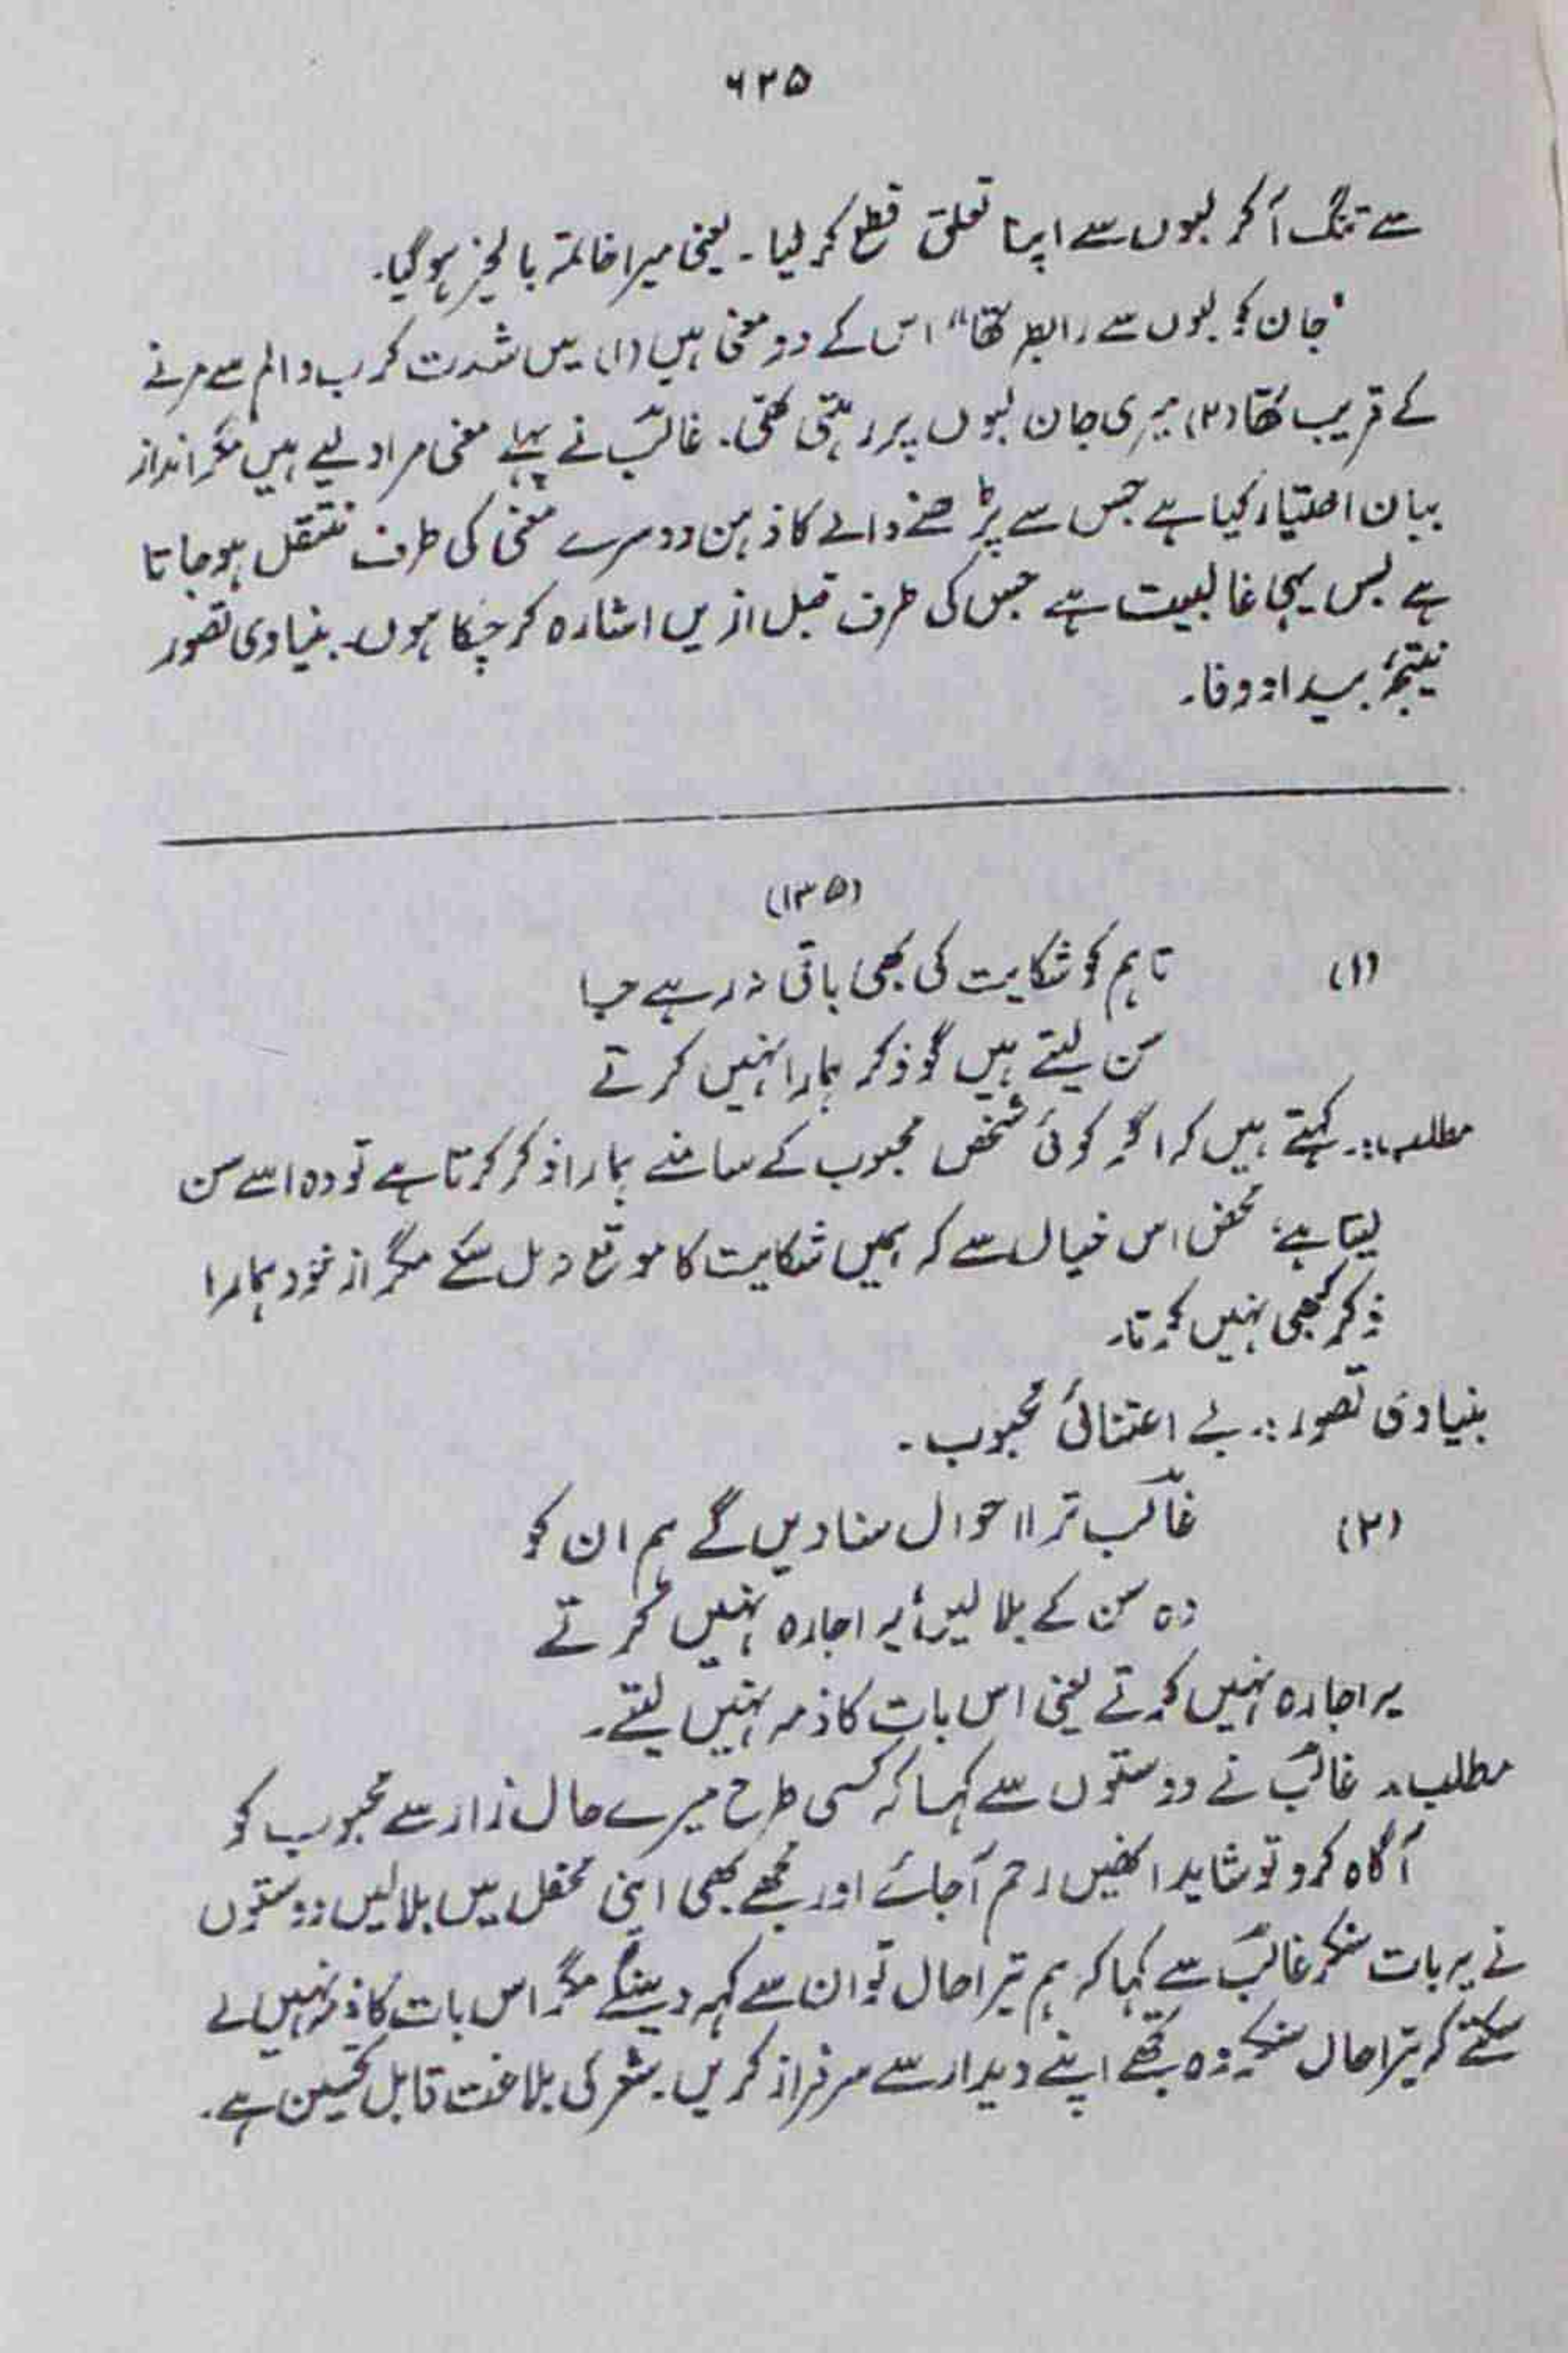 ۶۳۵
سے تنگ آ کر لبوں سے اپنا تعلق قطع کر لیا۔ یعنی میرا خاتمہ بالخیر ہو گیا۔
"جان کو لبوں سے رابطہ تھا" اس کے دو معنی ہیں (۱) میں شدت کرب و الم سے مرنے
کے قریب تھا (۲) میری جان لبوں پر رہتی تھی۔ غالبؔ نے پہلے معنی مراد لیے ہیں مگر انداز
بیان اختیار کیا ہے جس سے پڑھنے والے کا ذہن دوسرے معنی کی طرف منتقل ہو جاتا
ہے بس یہی غالبیت ہے جس کی طرف قبل ازیں اشارہ کر چکا ہوں۔ بنیادی تصور
نیتجۂ بیداد وفا۔
(۱۳۵)
(۱) تا ہم کو شکایت کی بھی باقی نہ رہے جا
سن لیتے ہیں گو ذکر ہمارا نہیں کرتے
مطلب:۔ کہتے ہیں کہ اگر کوئی شخص محبوب کے سامنے ہمارا ذکر کرتا ہے تو وہ اسے سن
لیتا ہے، محض اس خیال سے کہ ہمیں شکایت کا موقع نہ مل سکے مگر از خود ہمارا
ذکر کبھی نہیں کرتا۔
بنیادی تصور:۔ بے اعتنائی محبوب۔
(۲) غالبؔ ترا احوال سنا دیں گے ہم ان کو
وہ سن کے بلا لیں، یہ اجارہ نہیں کرتے
یہ اجارہ نہیں کرتے یعنی اس بات کا ذمہ نہیں لیتے۔
مطلب۔ غالبؔ نے دوستوں سے کہا کہ کسی طرح میرے حال زار سے محبوب کو
آگاہ کرو تو شاید انھیں رحم آجائے اور مجھے بھی اپنی محفل میں بلا لیں دوستوں
نے یہ بات سنکر غالبؔ سے کہا کہ ہم تیرا حال تو ان سے کہہ دینگے مگر اس بات کا ذمہ نہیں لے
سکتے کہ تیرا حال سنکر وہ تجھے اپنے دیدار سے سرفراز کریں۔ شعر کی بلاغت قابل تحسین ہے۔